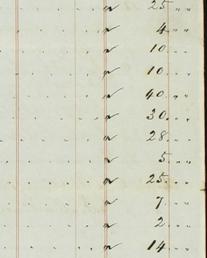 25 " "
4 " "
10 " "
10 " "
40 " "
30 " "
28 " "
5 " "
25 " "
7 " "
2 " "
14 " "